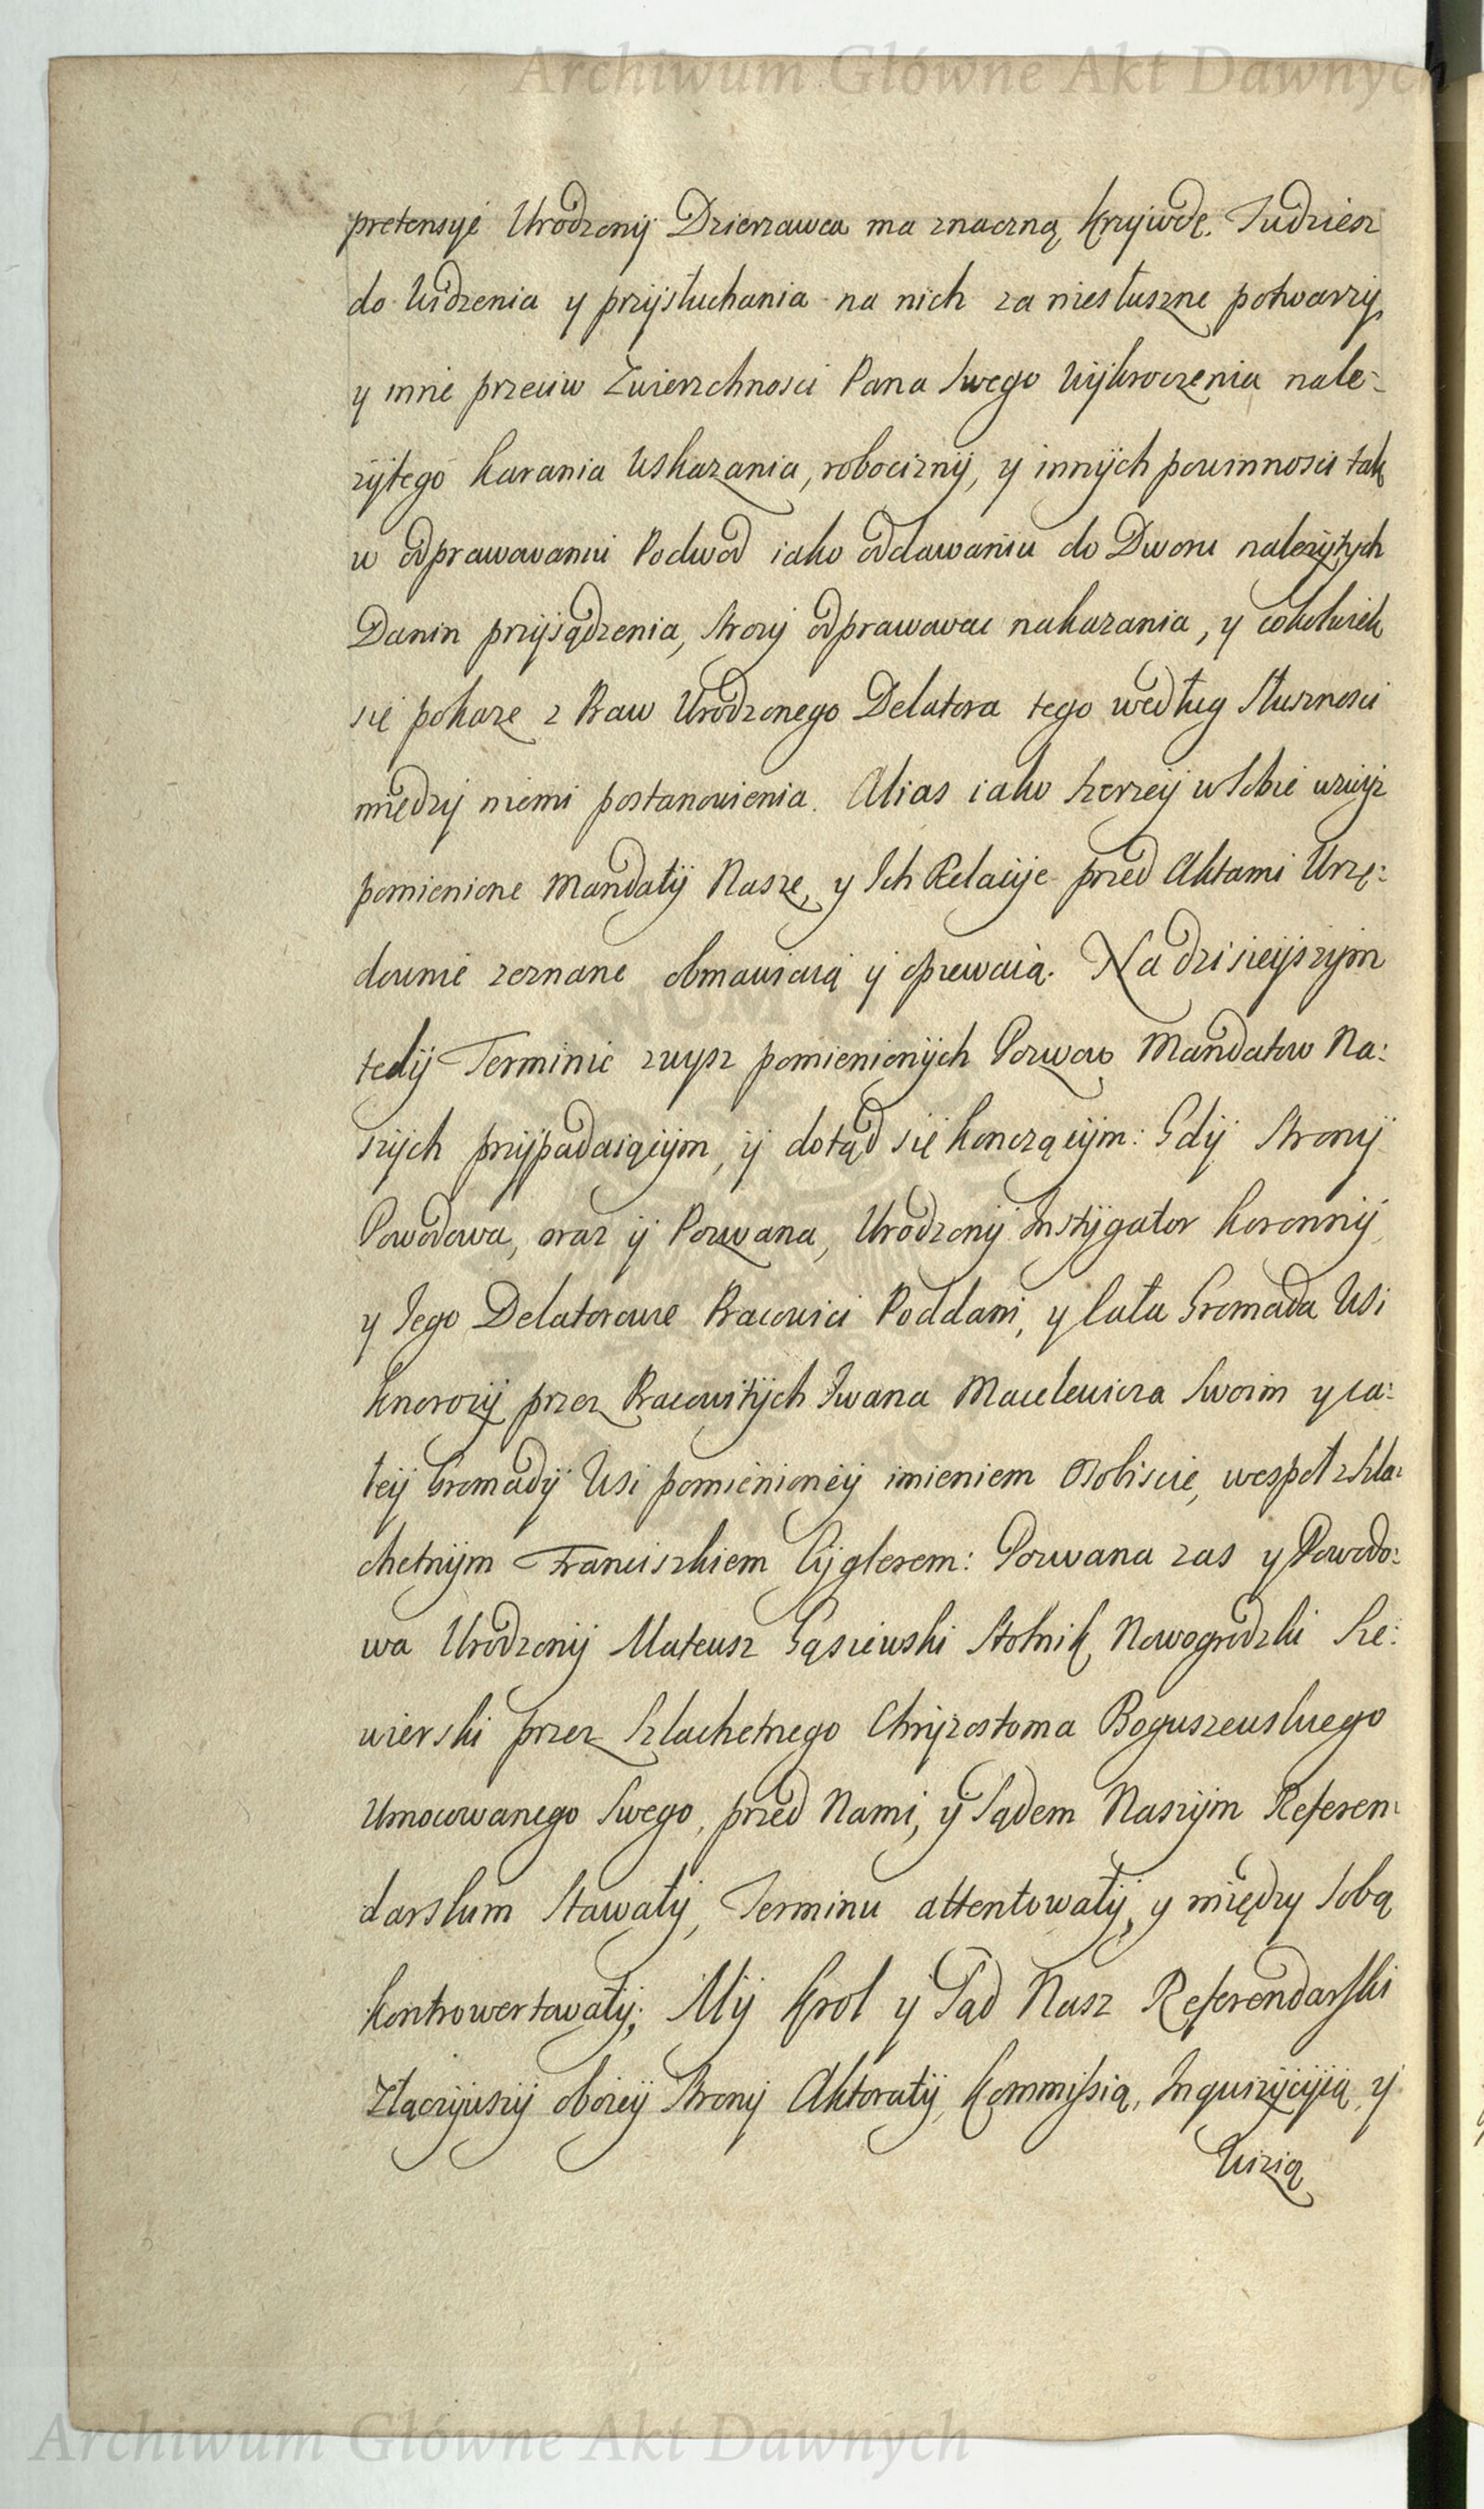 Archiwum Główne Akt Dawnych
pretensyi Urodzony Dzierzawca ma znaczną krzywdę. Tudziesz
do Widzenia y przysłuchania na nich za niesłuszne potwarzy,
y inne przeciw Zwierzchnosci Pana Swego Wykroczenia nale-
zytego karania Wskazania, robocizny, y innych powinnosci tak
w odprawowaniu Podwod iako oddawaniu do Dworu nalezytych
Danin przysądzenia, Strozy odprawowac nakazania, y cokolwiek
się pokaze z Praw Urodzonego Delatora tego według Słusznosci
między niemi postanowienia. Alias iako Szerzey w Sobie wzwysz
pomienione Mandaty Nasze, y Ich Relacye przed Aktami Urzę:
downie zeznane obmawiaią y opiewaią. Na dzisieyszym
tedy Terminie zwysz pomienionych Pozwow Mandatow Na:
szych przypadaiącym, y dotąd się konczącym: Gdy Strony
Powodowa, oraz y Pozwana, Urodzony Instygator Koronny,
y Jego Delatorowie Pracowici Poddani, y Cała Gromada Wsi
Knorozy przez Pracowitych Iwana Macelewicza Swoim y ca:
łey Gromady Wsi pomienioney imieniem Osobiscie, wespoł z Szla:
chetnym Franciszkiem Cyglerem: Pozwana zas y Powodo:
wa Urodzony Mateusz Gąsiewski Stolnik Nowogrodzki Sie:
wierski przez Szlachetnego Chryzostoma Boguszewskiego
Umocowanego Swego, przed Nami, y Sądem Naszym Referen:
darskim Stawały, Terminu attentowały, y między Sobą
kontrowertowały; My Krol y Sąd Nasz Referendarski
Złączywszy oboiey Strony Aktoraty, Kommissią, Inquizycyią, y
Wizią
Archiwum Główne Akt Dawnych